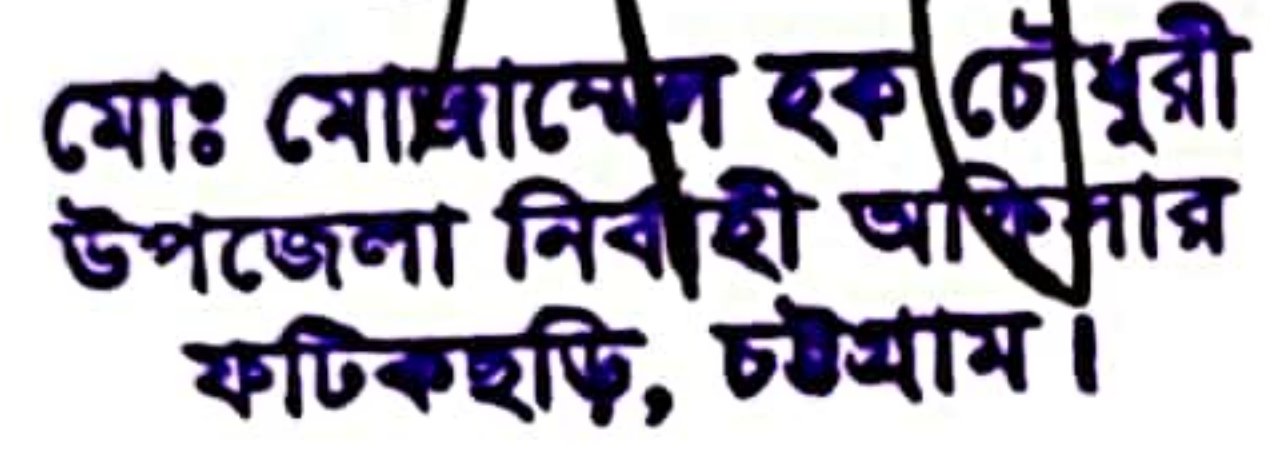 মোঃ মোজাম্মেল হক চৌধুরী
উপজেলা নির্বাহী অফিসার
ফটিকছড়ি, চট্টগ্রাম।